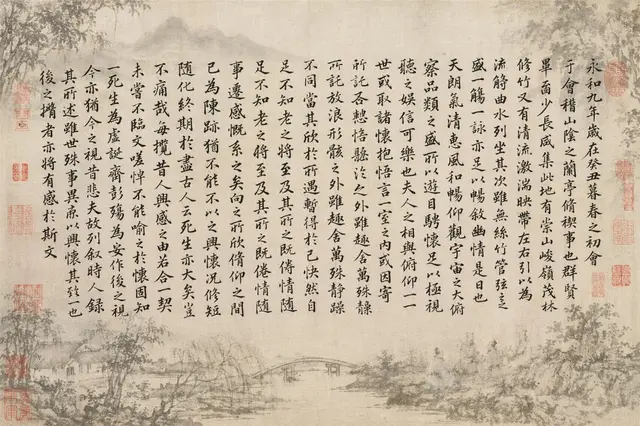 永和九年歲在癸丑暮春之初會
于會稽山陰之蘭亭脩稧事也群賢
畢至少長咸集此地有崇山峻嶺茂林
修竹又有清流激湍映帶左右引以為
流觴曲水列坐其次雖無絲竹管弦之
盛一觴一詠亦足以暢敘幽情是日也
天朗氣清惠風和暢仰觀宇宙之大俯
察品類之盛所以遊目騁懷足以極視
聽之娛信可樂也夫人之相與俯仰一一
世或取諸懷抱悟言一室之內或因寄
所託各悟懸於之外雖趣舍萬殊靜
所託放浪形骸之外雖趣舍萬殊靜躁
不同當其欣於所遇暫得於己快然自
足不知老之將至及其所之既倦情隨
足不知老之將至及其所之既倦情隨
事遷感慨系之矣向之所欣俯仰之間
已為陳跡猶不能不以之興懷況修短
隨化終期於盡古人云死生亦大矣豈
不痛哉每攬昔人興感之由若合一契
未嘗不臨文嗟悼不能喻之於懷固知
一死生為虛誕齊彭殤為妄作後之視
今亦猶今之視昔悲夫故列敘時人錄
其所述雖世殊事異所以興懷其致一也
後之攬者亦將有感於斯文